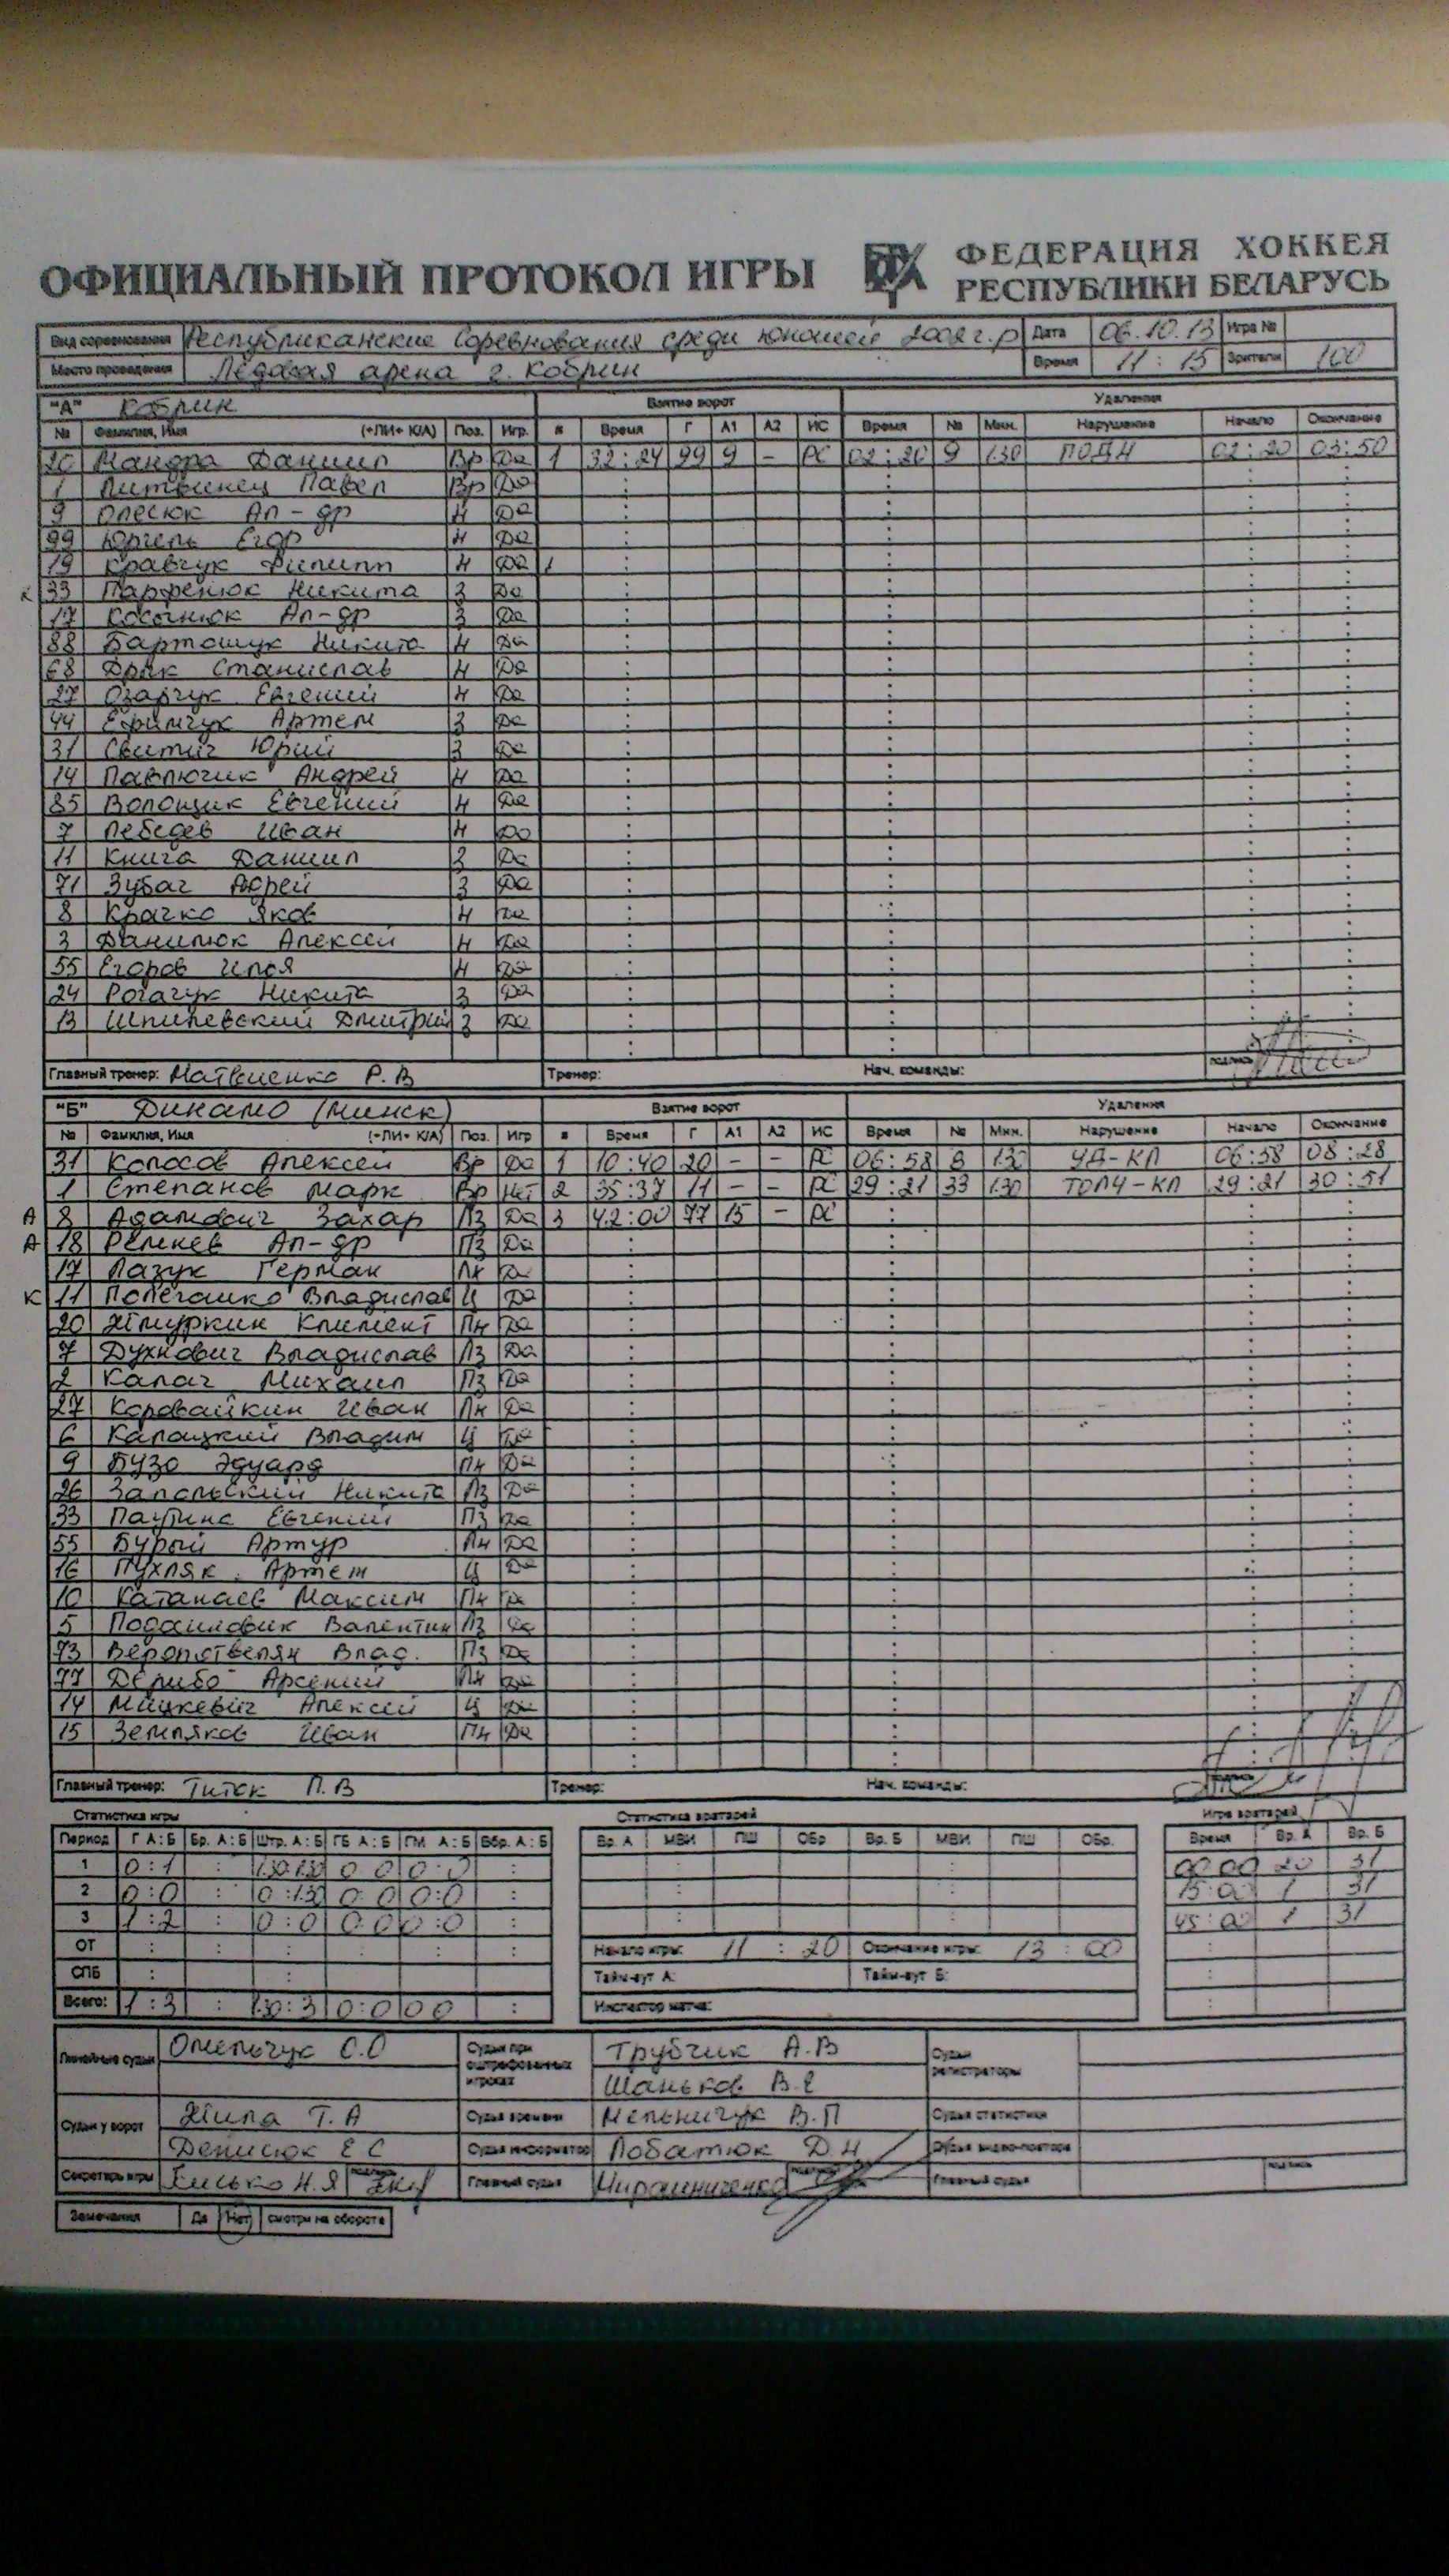 ОФИЦИАЛЬНЫЙ ПРОТОКОЛ ИГРЫ ФЕДЕРАЦИЯ ХОККЕЯ РЕСПУБЛИКИ БЕЛАРУСЬ
Вид соревнования Республиканские Соревнования среди юношей 2002 г.р Дата 06.10.13 Игра №
Место проведения Ледовая арена г. Кобрин Время 11:15 Зрители 100
"А" Кобрин Взятие ворот Удаления
№ Фамилия, Имя (-ЛИ- К/А) Поз. Игр. # Время Г А1 А2 ИС Время № Мин. Нарушение Начало Окончание
20 Мандра Даниил Вр Да 1 32:24 99 9 - РС 02:20 9 1.30 ПОДН 02:20 03:50
1 Литвинец Павел Вр Да
9 Олесюк Ал-др Н Да
99 Юргель Егор Н Да
19 Кравчук Филипп Н Да
К 33 Парфенюк Никита З Да
17 Косочнюк Ал-др З Да
88 Бартошук Никита Н Да
68 Дрик Станислав Н Да
27 Озарчук Евгений Н Да
44 Ефимчук Артем З Да
31 Свитич Юрий З Да
14 Павлючик Андрей Н Да
85 Волощик Евгений Н Да
7 Лебедев Иван Н Да
11 Книга Даниил З Да
71 Зубач З Да
8 Крачко Яков Н Да
3 Данилюк Алексей Н Да
55 Егоров Илья Н Да
24 Рогачук Никита З Да
13 Шпилевский Дмитрий З Да
Главный тренер: Матвиенко Р.В Тренер: Нач. команды: подпись
"Б" Динамо (Минск) Взятие ворот Удаления
№ Фамилия, Имя (-ЛИ- К/А) Поз. Игр # Время Г А1 А2 ИС Время № Мин. Нарушение Начало Окончание
31 Колосов Алексей Вр Да 1 10:40 20 - - РС 06:58 8 1.30 УД-КЛ 06:58 08:28
1 Степанов Марк Вр Нет 2 35:37 11 - - РС 29:21 33 1.30 ТОЛЧ-КЛ 29:21 30:51
А 8 Адамович Захар ЛЗ Да 3 42:00 77 15 - РС
А 18 Ремнев Ал-др ПЗ Да
17 Лазук Герман ЛН Да
К 11 Полегошко Владислав Ц Да
20 Жмуркин Климент ПН Да
7 Духнович Владислав ЛЗ Да
2 Калач Михаил ПЗ Да
27 Коровайкин Иван ЛН Да
6 Калацкий Владим Ц Да
9 Бузо Эдуард ПН Да
26 Запольский Никита ЛЗ Да
33 Паутина Евгений ПЗ Да
55 Бурый Артур ЛН Да
16 Пухляк Артем Ц Да
10 Катанаев Максим ПН Да
5 Подашовик Валентин ЛЗ Да
73 Влад. ПЗ Да
77 Дерибо Арсений ЛН Да
14 Мицкевич Алексей Ц Да
15 Земляков Иван ПН Да
Главный тренер: Титок П.В Тренер: Нач. команды: подпись
Статистика игры Статистика вратарей Игра вратарей
Период Г А:Б Бр. А:Б Штр. А:Б ГБ А:Б ГМ А:Б Вбр. А:Б Вр. А МВИ ПШ ОБр Вр. Б МВИ ПШ ОБр. Время Вр. А Вр. Б
1 0:1 : 1.30:1.30 0 0 0:0 : 00:00 20 31
2 0:0 : 0:1.30 0 0 0:0 : 15:00 1 31
3 1:2 : 0:0 0:0 0:0 : 45:00 1 31
ОТ Начало игры: 11:20 Окончание игры: 13:00
СПБ Тайм-аут А: Тайм-аут Б:
Всего: 1:3 : 1.30:3 0:0 0 0 : Инспектор матча:
Линейные судьи Омельчук О.О Судьи при оштрафованных игроках Трубчик А.В Судьи регистраторы
Шаньков В.Е
Судьи у ворот Жила Т.А Судья времени Мельничук В.П Судья статистики
Денисюк Е С Судья информатор Лобатюк Д.Н Судья видео-повтора
Секретарь игры Енсько Н.Я подпись Главный судья Мирошниченко подпись Главный судья подпись
Замечания Да Нет смотри на обороте